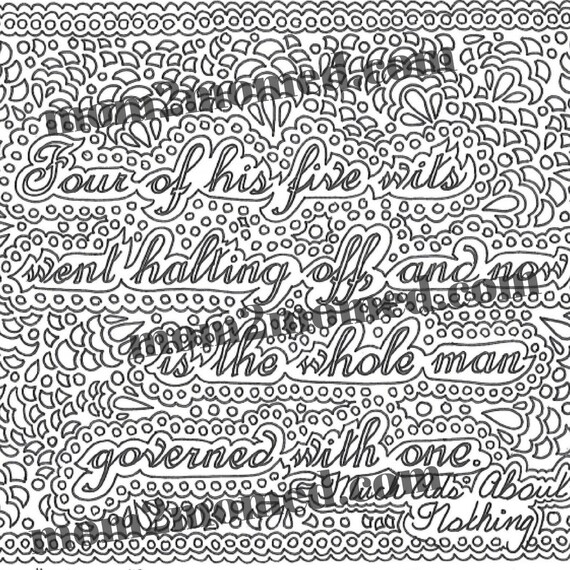 mom2momed.com
Four of his five wits
went halting off, and now
mom2momed.com
is the whole man
governed with one.
Much Ado About
Nothing
mom2momed.com